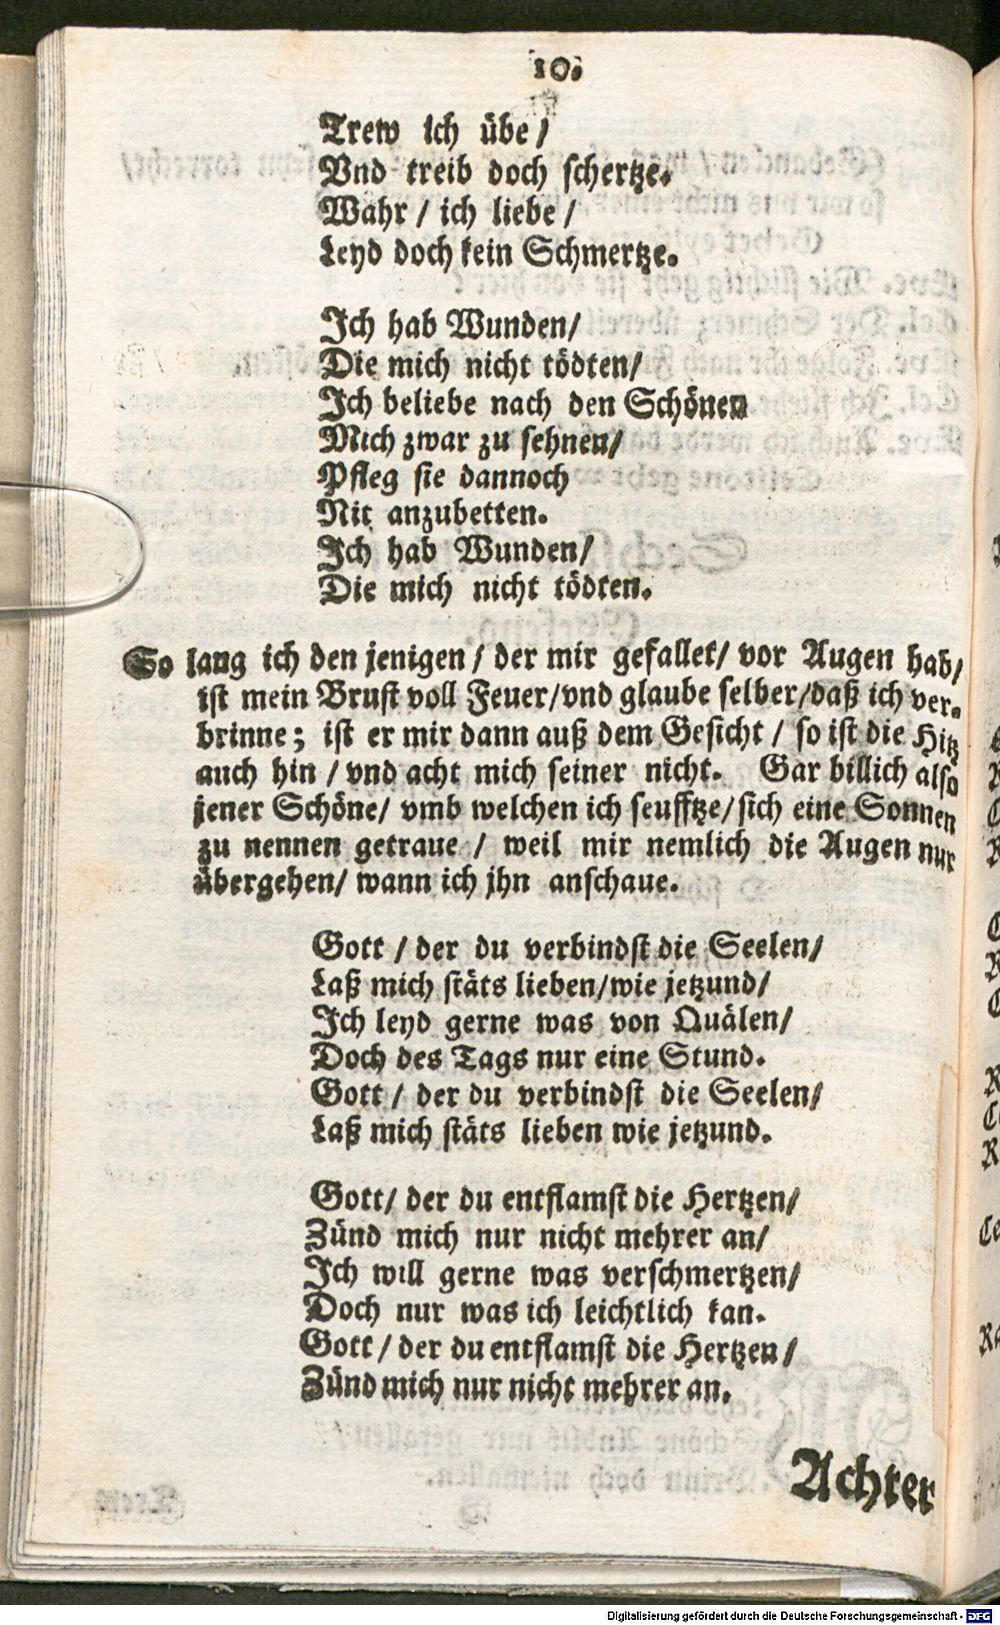 10.
Trew ich übe /
Vnd treib doch schertze.
Wahr / ich liebe /
Leyd doch kein Schmertze.
Ich hab Wunden /
Die mich nicht tödten /
Ich beliebe nach den Schönen
Mich zwar zu sehnen /
Pfleg sie dannoch
Nit anzubetten.
Ich hab Wunden /
Die mich nicht tödten.
So lang ich den jenigen / der mir gefallet / vor Augen hab /
ist mein Brust voll Feuer / vnd glaube selber / daß ich ver-
brinne ; ist er mir dann auß dem Gesicht / so ist die Hitz
auch hin / vnd acht mich seiner nicht. Gar billich also
jener Schöne / vmb welchen ich seufftze / sich eine Sonnen
zu nennen getraue / weil mir nemlich die Augen nur
übergehen / wann ich jhn anschaue.
Gott / der du verbindst die Seelen /
Laß mich stäts lieben / wie jetzund /
Ich leyd gerne was von Quälen /
Doch des Tags nur eine Stund.
Gott / der du verbindst die Seelen /
Laß mich stäts lieben wie jetzund.
Gott / der du entflamst die Hertzen /
Zünd mich nur nicht mehrer an /
Ich will gerne was verschmertzen /
Doch nur was ich leichtlich kan.
Gott / der du entflamst die Hertzen /
Zünd mich nur nicht mehrer an.
Achter
Digitalisierung gefördert durch die Deutsche Forschungsgemeinschaft - DFG